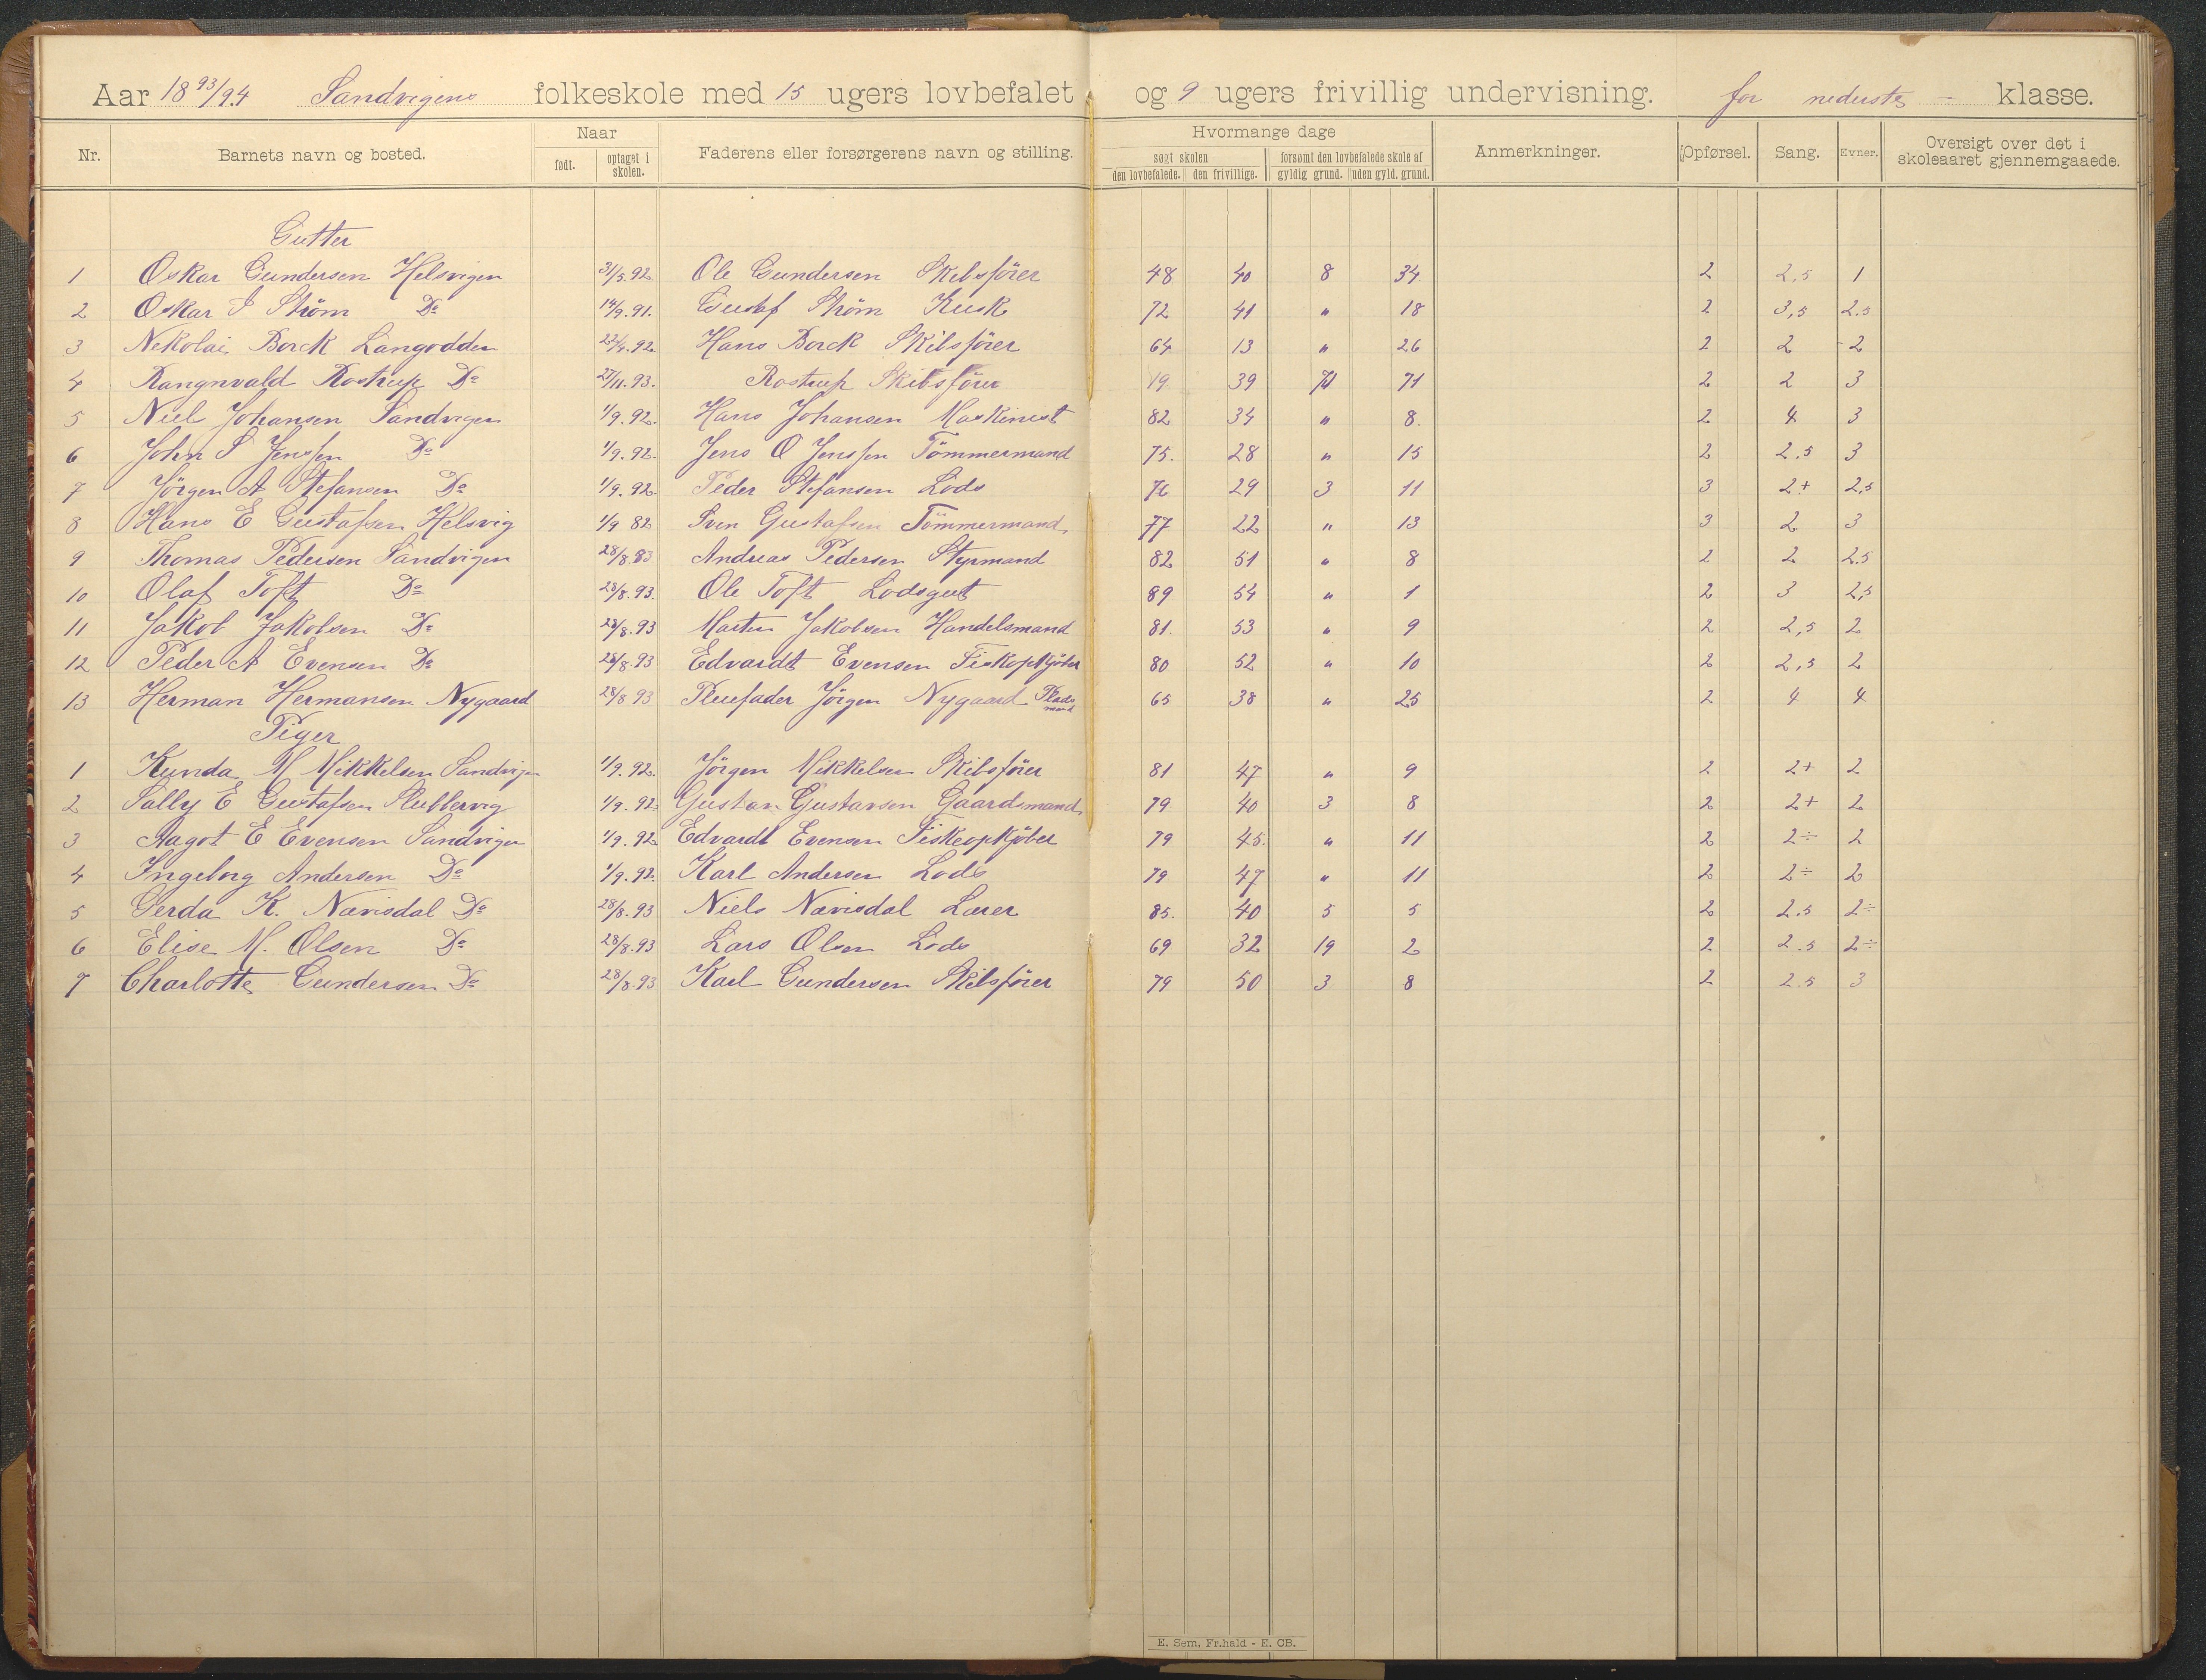 Aar 18 93/94 Sandvigens folkeskole med 15 ugers lovbefalet og 9 ugers frivillig undervisning. for nederste klasse.
Nr. Barnets navn og bosted. Naar født. optaget i skolen. Faderens eller forsørgerens navn og stilling. Hvormange dage søgt skolen den lovbefalede. den frivillige. forsømt den lovbefalede skole af gyldig grund. uden gyld. grund. Anmerkninger. Opførsel. Sang. Evner. Oversigt over det i skoleaaret gjennemgaaede.
Gutter
1 Oskar Gundersen Helsvigen 31/5.92. Ole Gundersen Skibsfører 48 40 8 34. 2 2,5 1
2 Oskar G Strøm Do 14/9.91. Gustaf Strøm Kusk 72 41 " 18 2 3,5 2.5
3 Nekolai Borck Langodden 22/4.92. Hans Borck Skibsfører 64 13 " 26 2 2 2
4 Rangnvald Rostrup Do 27/11.93. Rostrup Skibsfører 19 39 71 2 2 3
5 Niel Johansen Sandvigen 1/9.92. Hans Johansen Maskinist 82 34 " 8. 2 4 3
6 John S Jenssen Do 1/9.92. Jens O Jenssen Tömmermand 75. 28 " 15 2 2.5 3
7 Jörgen A Stefansen Do 1/9.92. Peder Stefansen Lods 76 29 3 11 3 2+ 2,5
8 Hans E Gustafsen Helsvig 1/9 82 Sven Gustafsen Tömmermand. 77 22 " 13 3 2 3
9 Thomas Pedersen Sandvigen 28/8.83 Andreas Pedersen Styrmand 82 51 " 8 2 2 2.5
10 Olaf Toft Do 28/8.93. Ole Toft Lodsgut 89 54 " 1 2 3 2,5
11 Jakob Jakobsen Do 28/8.93 Martin Jakobsen Handelsmand 81. 53 " 9 2 2,5 2
12 Peder A Evensen Do 28/8.93 Edvardt Evensen Fiskopkjöber 80 52 " 10 2 2,5 2
13 Herman Hermansen Nygaard 28/8 93 Pleiefader Jörgen Nygaard Pladsmand 65 38 " 25 2 4 4
Piger
1 Kunda M Mikkelsen Sandvigen 1/9.92. Jörgen Mikkelsen Skibsfører 81 47 " 9 2 2+ 2
2 Sally E Gustafsen Slubbervig 1/9.92 Gustav Gustavsen Gaardsmand. 79 40 3 8 2 2+ 2
3 Aagot E Evensen Sandvigen 1/9.92 Edvardt Evensen Fiskeopkjöber 79 45. " 11 2 2÷ 2
4 Ingeborg Andersen Do 1/9.92. Karl Andersen Lods 79 47 " 11 2 2÷ 2
5 Gerda K. Nævisdal Do 28/8.93 Niels Nævisdal Lærer 85. 40 5 5 2 2.5 2÷
6 Elise M. Olsen Do 28/8.93 Lars Olsen Lods 69 32 19 2 2 2.5 2÷
7 Charlotte Gundersen Do 28/8.93 Karl Gundersen Skibsfører 79 50 3 8 2 2.5 3
E. Sem, Fr.hald - E. CB.